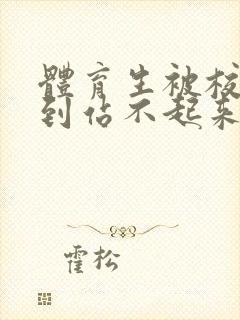 體育生被校
到站不起来
霍松